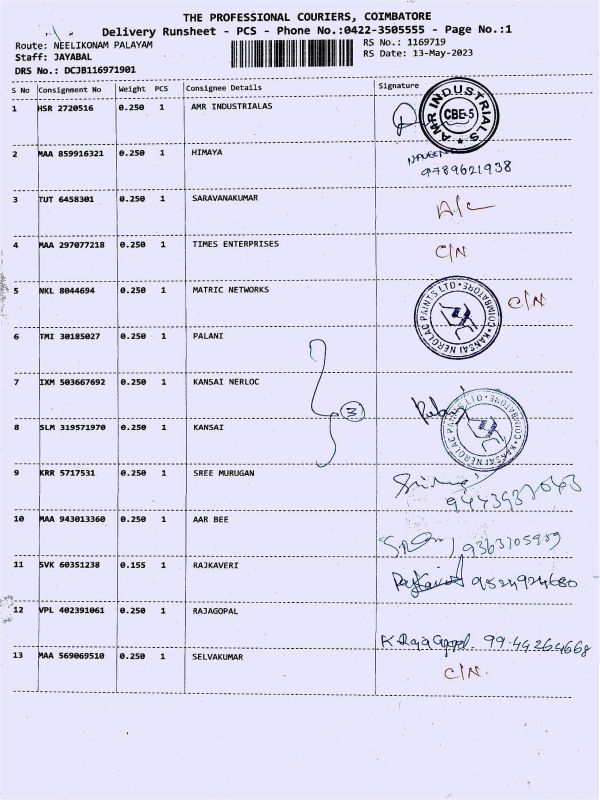 THE PROFESSIONAL COURIERS, COIMBATORE
Delivery Runsheet - PCS - Phone No.:0422-3505555 - Page No.:1
Route: NEELIKONAM PALAYAM
RS No.: 1169719
Staff: JAYABAL
RS Date: 13-May-2023
DRS No.: DCJB116971901
S No Consignment No Weight PCS Consignee Details Signature
1 HSR 2720516 0.250 1 AMR INDUSTRIALAS
AMR INDUSTRIALS CBE-5
2 MAA 859916321 0.250 1 HIMAYA
9789621938
3 TUT 6458301 0.250 1 SARAVANAKUMAR
A/c
4 MAA 297077218 0.250 1 TIMES ENTERPRISES
C/N
5 NKL 8044694 0.250 1 MATRIC NETWORKS
C/N
KANSAI NEROLAC PAINTS LTD COIMBATORE
6 TMI 30185027 0.250 1 PALANI
7 IXM 503667692 0.250 1 KANSAI NERLOC
3
8 SLM 319571970 0.250 1 KANSAI
KANSAI NEROLAC PAINTS LTD COIMBATORE
9 KRR 5717531 0.250 1 SREE MURUGAN
10 MAA 943013360 0.250 1 AAR BEE
9363105959
11 SVK 60351238 0.155 1 RAJKAVERI
9524924680
12 VPL 402391061 0.250 1 RAJAGOPAL
K Raja Gopal. 99.44264668
13 MAA 569069510 0.250 1 SELVAKUMAR
C/N.